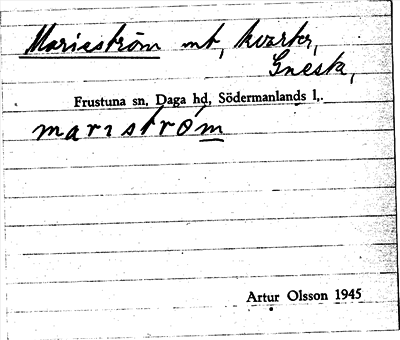 Marieström mt, kvarter,
Gnesta,
Frustuna sn, Daga hd, Södermanlands l,.
marıström
Artur Olsson 1945